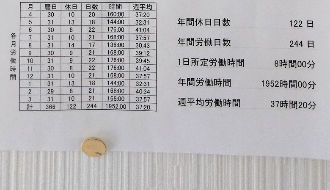 月 暦日 休日 日数 時間 週平均
4 30 10 20 160:00 37:20
5 31 13 18 144:00 32:31
6 30 8 22 176:00 41:04
7 31 10 21 168:00 37:57
8 31 14 17 136:00 30:43
9 30 9 21 168:00 39:12
10 31 9 22 176:00 39:45
11 30 8 22 176:00 41:04
12 31 10 21 168:00 37:57
1 31 13 18 144:00 32:31
2 29 8 21 168:00 40:34
3 31 10 21 168:00 37:57
計 366 122 244 1952:00 37:20
各月労働時間
年間休日日数 122 日
年間労働日数 244 日
1日所定労働時間 8時間00分
年間労働時間 1952時間00分
週平均労働時間 37時間20分